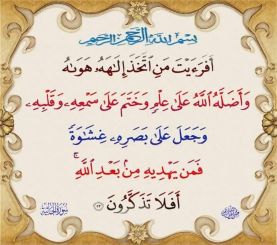 بسم الله الرحمن الرحيم
أَفَرَءَيْتَ مَنِ اتَّخَذَ إِلَٰهَهُۥ هَوَىٰهُ
وَأَضَلَّهُ اللَّهُ عَلَىٰ عِلْمٍ وَخَتَمَ عَلَىٰ سَمْعِهِۦ وَقَلْبِهِۦ
وَجَعَلَ عَلَىٰ بَصَرِهِۦ غِشَٰوَةً
فَمَن يَهْدِيهِ مِنۢ بَعْدِ اللَّهِ ۚ
أَفَلَا تَذَكَّرُونَ ٢٣